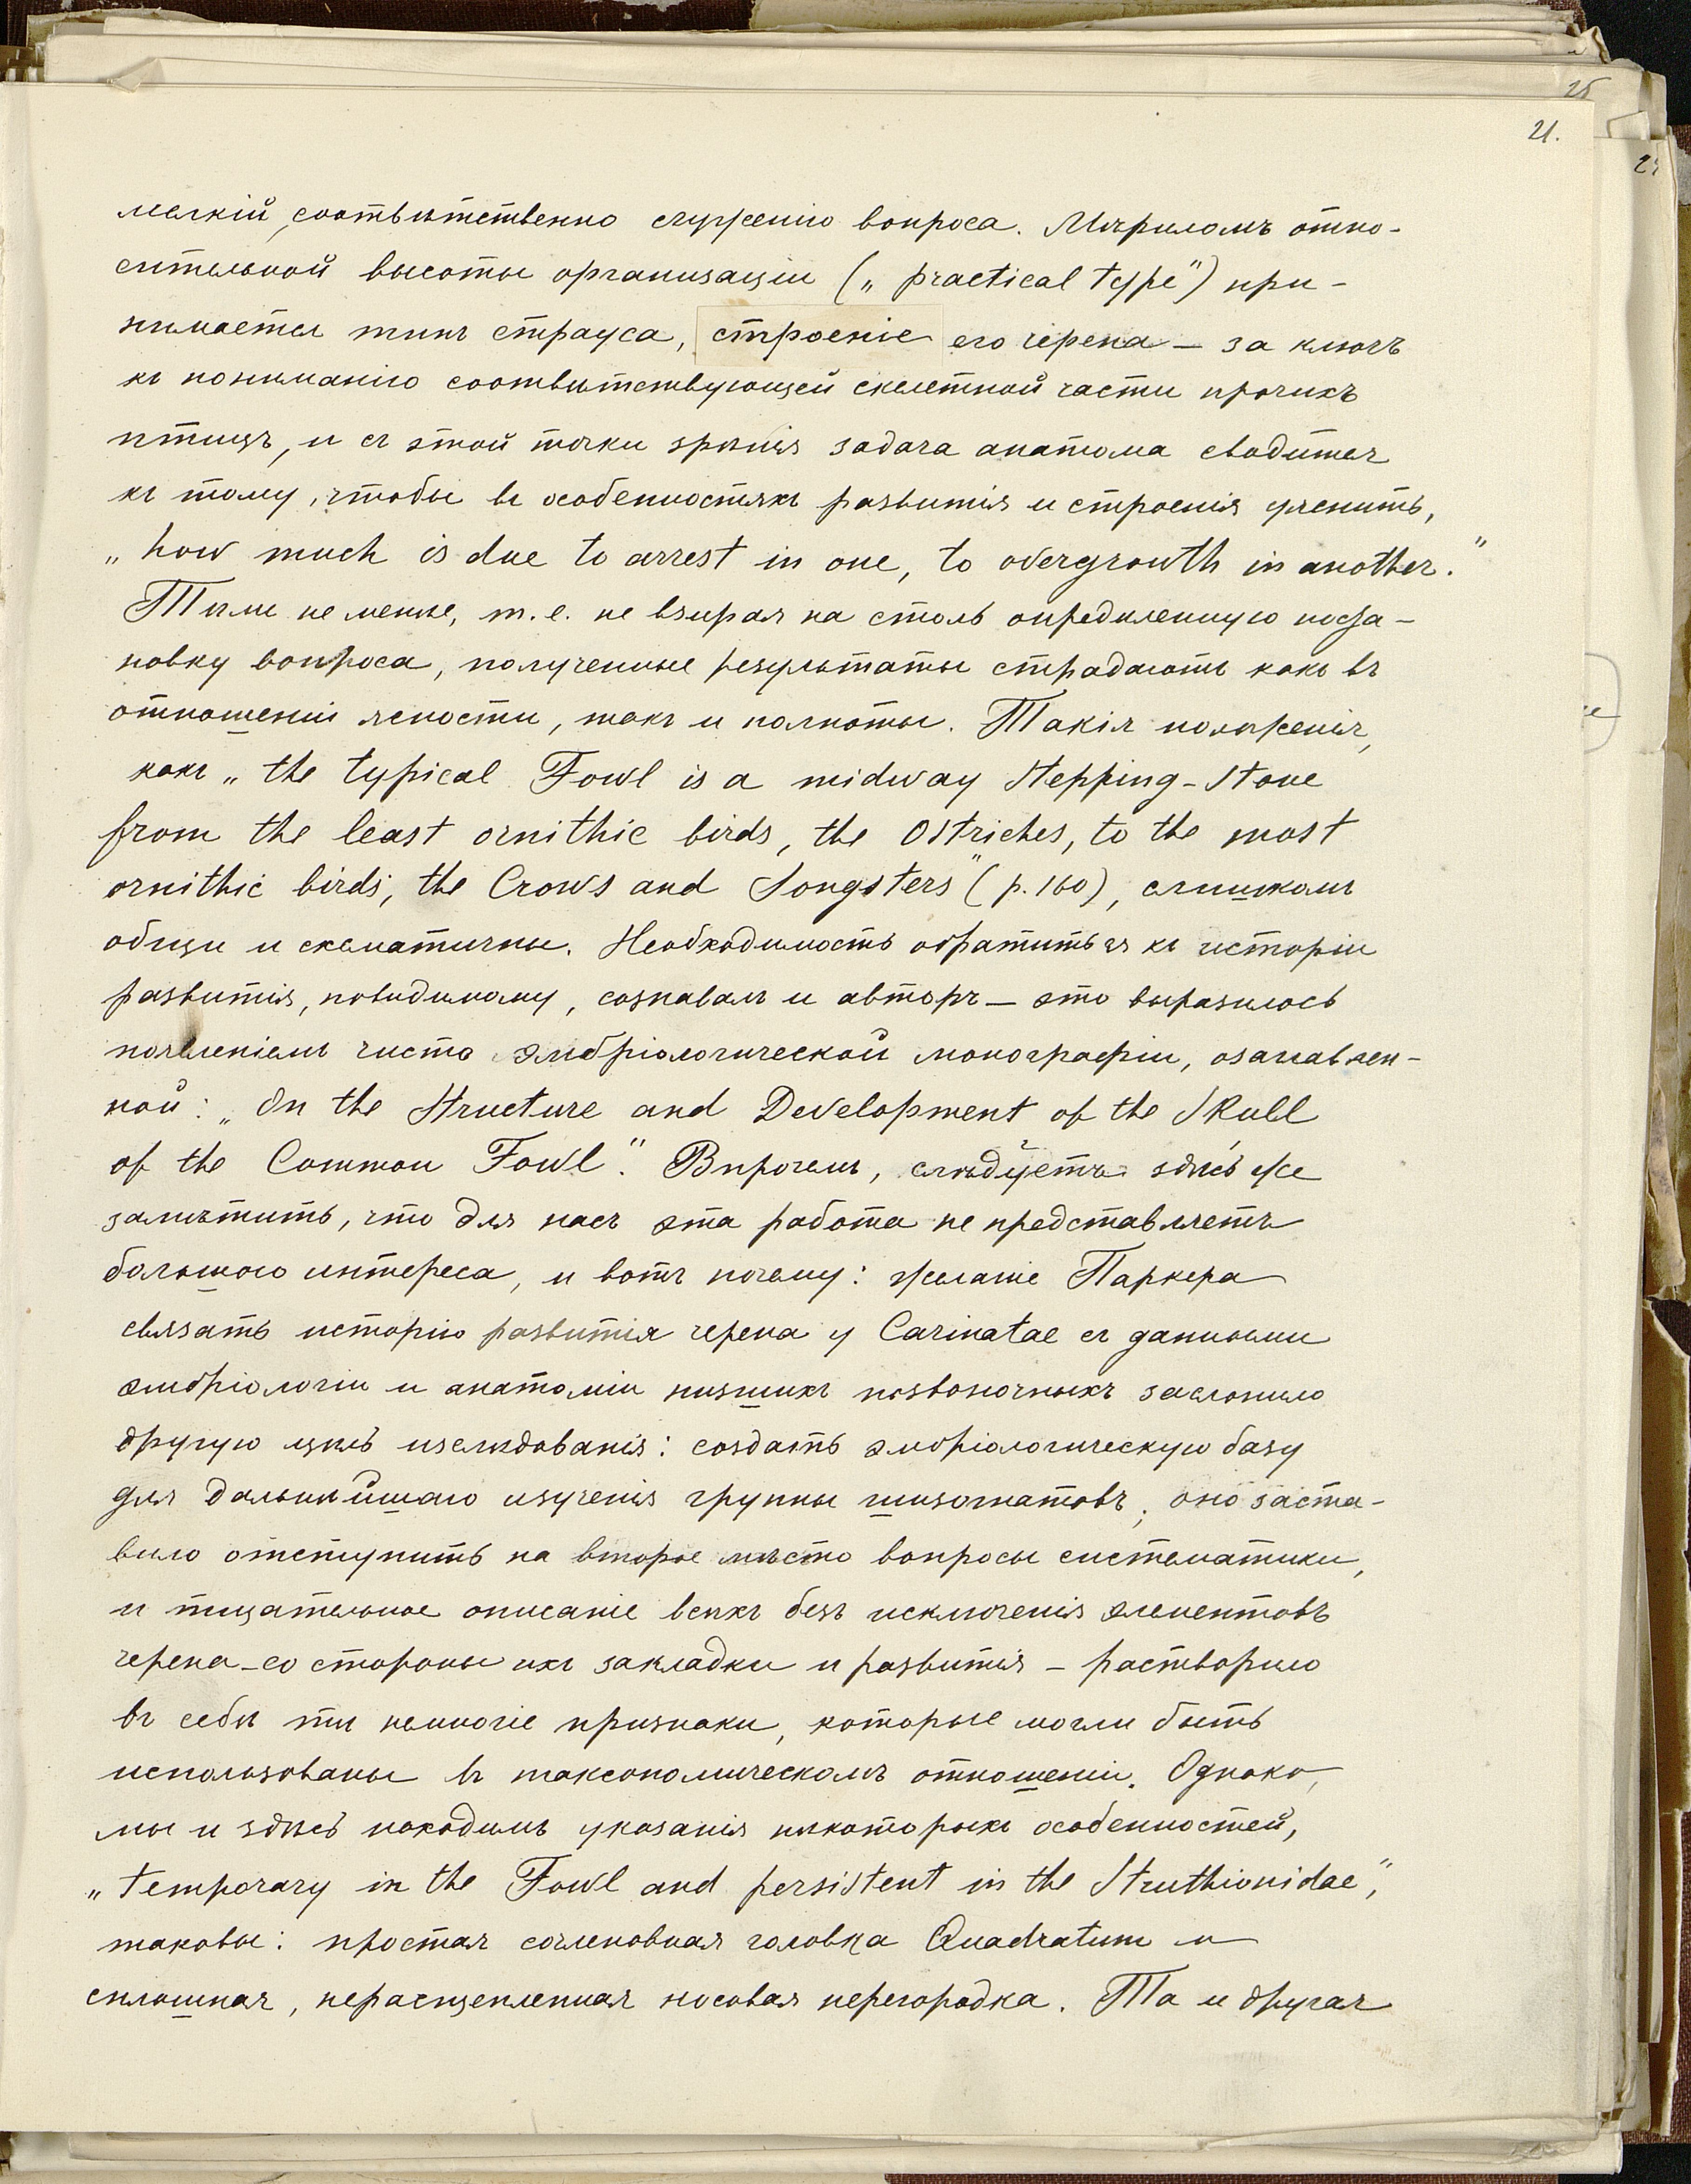 25
21.
24
мелкій, соотвѣтственно съуженію вопроса. Мѣриломъ отно-
сительной высоты организаціи („practical type") при-
нимается типъ страуса, строеніе его черепа — за ключъ
къ пониманію соотвѣтствующей скелетной части прочихъ
птицъ, и съ этой точки зрѣнія задача анатома сводится
къ тому, чтобы въ особенностяхъ развитія и строенія уяснить,
„how much is due to arrest in one, to overgrowth in another."
Тѣмъ не менѣе, т. е. не взирая на столь опредѣленную поста-
новку вопроса, полученные результаты страдаютъ какъ въ
отношеніи ясности, такъ и полноты. Такія положенія,
какъ „the typical Fowl is a midway Stepping-Stone
from the least ornithic birds, the Ostriches, to the most
ornithic birds, the Crows and Songsters" (p. 160), слишкомъ
общи и схематичны. Необходимость обратиться къ исторіи
развитія, повидимому, сознавалъ и авторъ — это выразилось
появленіемъ чисто эмбріологической монографіи, озаглавлен-
ной: „On the Structure and Development of the Skull
of the Common Fowl". Впрочемъ, слѣдуетъ здѣсь же
замѣтить, что для насъ эта работа не представляетъ
большого интереса, и вотъ почему: желаніе Паркера
связать исторію развитія черепа у Carinatae съ данными
эмбріологіи и анатоміи низшихъ позвоночныхъ заслонило
другую цѣль изслѣдованія: создать эмбріологическую базу
для дальнѣйшаго изученія группы шизогнатовъ; оно заста-
вило отступить на второе мѣсто вопросы систематики,
и тщательное описаніе всѣхъ безъ исключенія элементовъ
черепа — со стороны ихъ закладки и развитія — растворило
въ себѣ тѣ немногіе признаки, которые могли быть
использованы въ таксономическомъ отношеніи. Однако,
мы и здѣсь находимъ указанія нѣкоторыхъ особенностей,
„temporary in the Fowl and persistent in the Struthionidae",
таковы: простая сочленовная головка Quadratum и
сплошная, нерасщепленная носовая перегородка. Та и другая